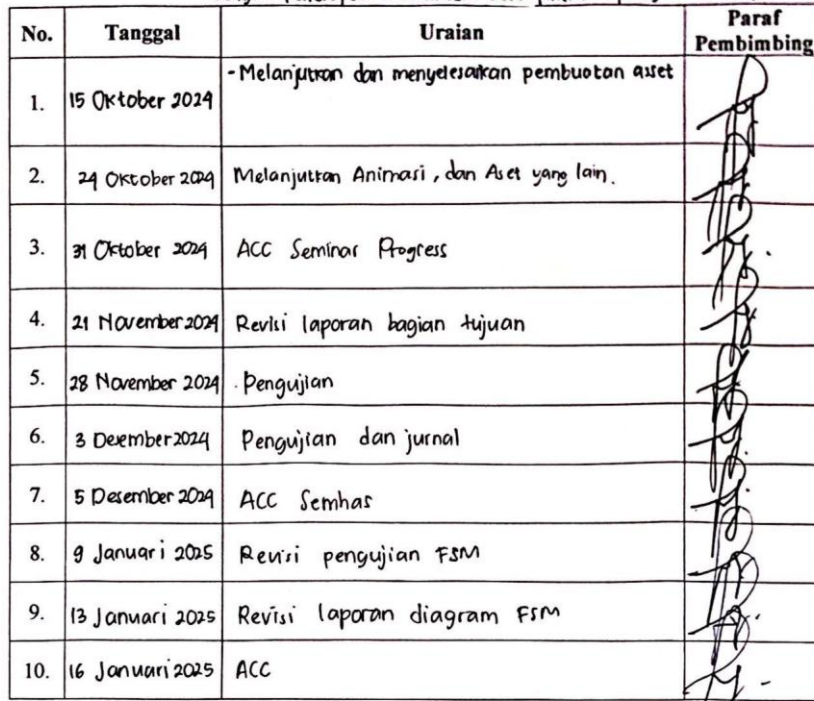 No. Tanggal Uraian Paraf Pembimbing
1. 15 Oktober 2024 - Melanjutkan dan menyelesaikan pembuatan asset
2. 24 Oktober 2024 Melanjutkan Animasi, dan Aset yang lain.
3. 31 Oktober 2024 ACC Seminar Progress
4. 21 November 2024 Revisi laporan bagian tujuan
5. 28 November 2024 . Pengujian
6. 3 Desember 2024 Pengujian dan jurnal
7. 5 Desember 2024 ACC Semhas
8. 9 Januari 2025 Revisi pengujian FSM
9. 13 Januari 2025 Revisi laporan diagram FSM
10. 16 Januari 2025 ACC